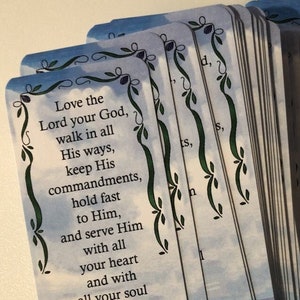 Love the
Lord your God,
walk in all
His ways,
keep His
commandments,
hold fast
to Him,
and serve Him
with all
your heart
and with
all your soul